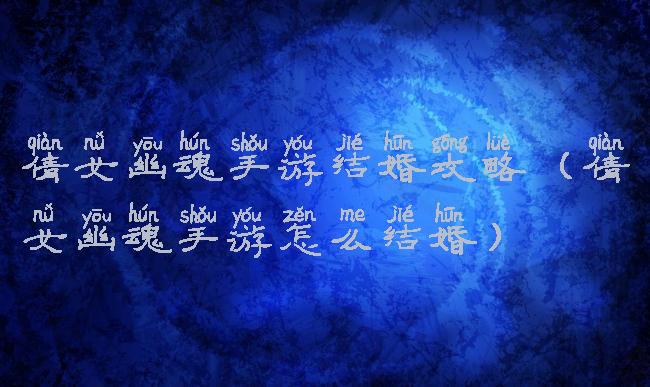 qiàn nǚ yōu hún shǒu yóu jié hūn gōng lüè qiàn
倩女幽魂手游结婚攻略（倩
nǚ yōu hún shǒu yóu zěn me jié hūn
女幽魂手游怎么结婚）